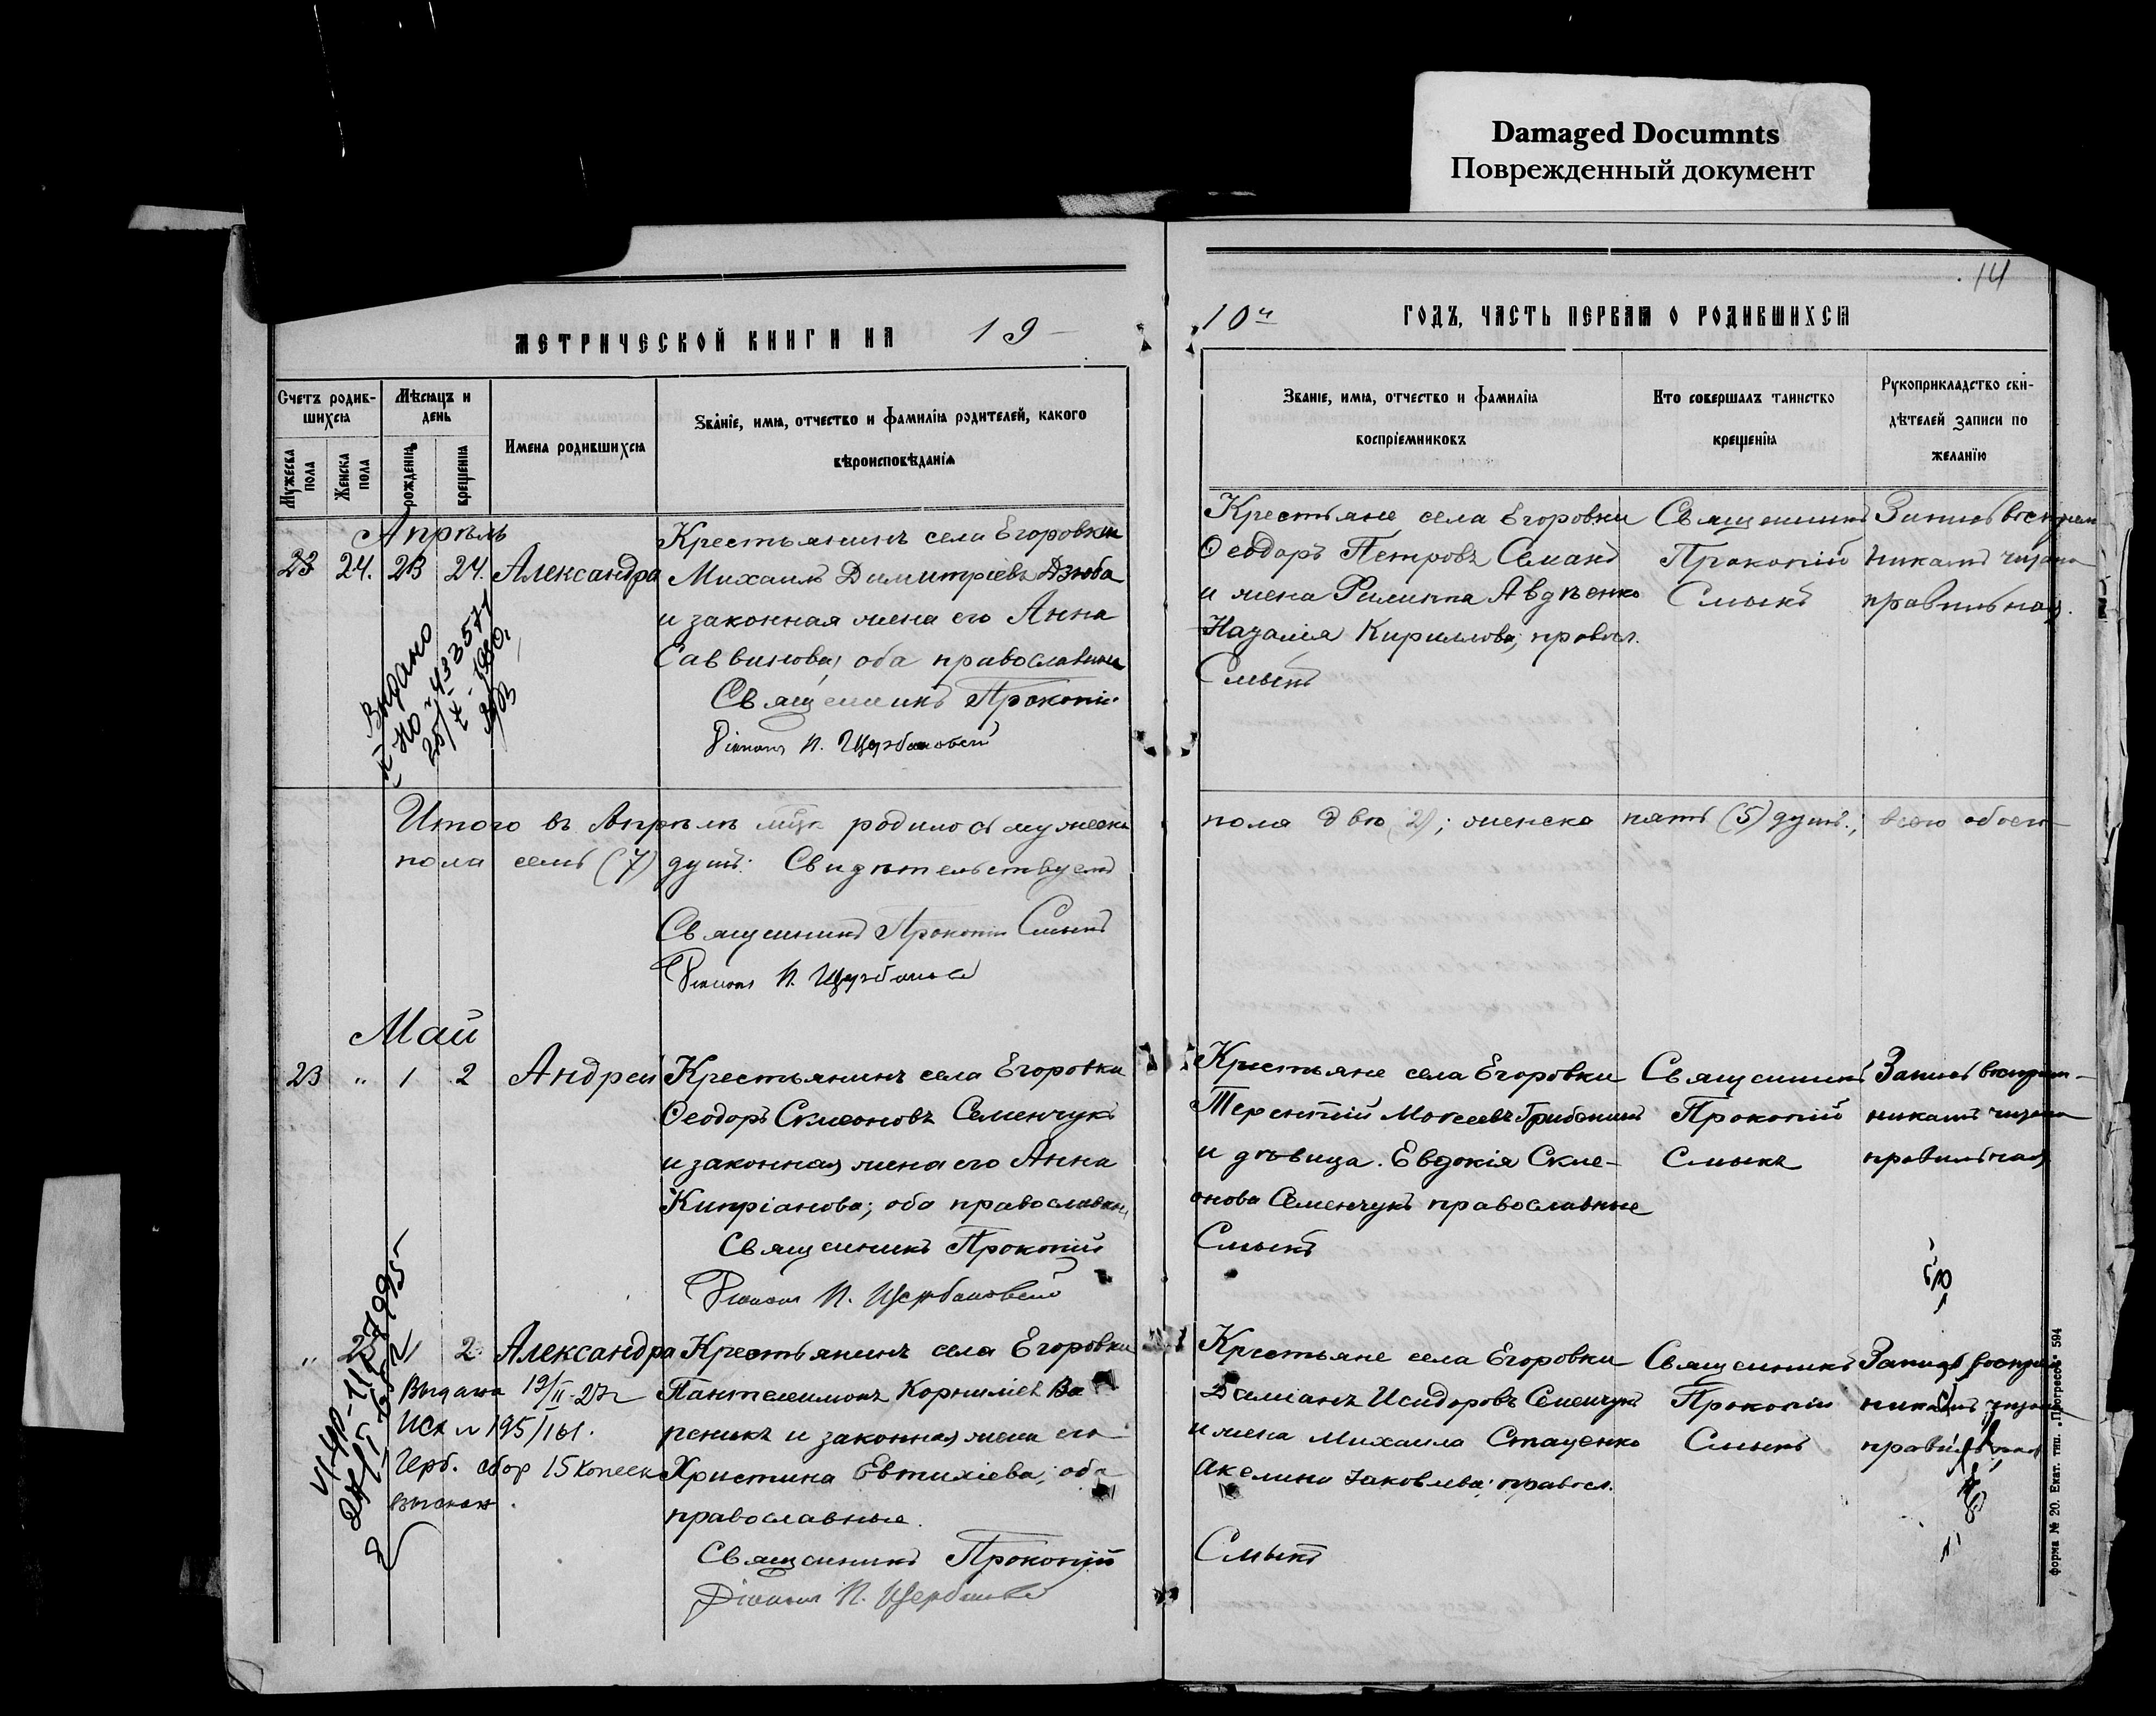 Damaged Documnts
Поврежденный документ
14
МЕТРИЧЕСКОЙ КНИГИ НА 19
Счетъ родив-
шихся
Мѣсяцъ и
день
Имена родившихся
Званіе, имя, отчество и фамилія родителей, какого
вѣроисповѣданія
Мужеска
пола
Женска
пола
рожденія
крещенія
Апрѣль
23 24. 23 24. Александра
Крестьянинъ села Егоровки
Михаилъ Димитріевъ Дзюба
и законная жена его Анна
Саввинова, оба православные
Священникъ Прокопій
Діаконъ П. Щербановскій
Выдано
Итого въ Апрѣлѣ мцѣ родилось мужеска
пола семь (7) душъ. Свидѣтельствуемъ
Священникъ Прокопій Смыкъ
Діаконъ П.
Май
23 " 1 2 Андрей
Крестьянинъ села Егоровки
Ѳеодоръ Симеоновъ Семенчукъ
и законная жена его Анна
Кипріанова; оба православные
Священникъ Прокопій
Діаконъ П. Щербановскій
" 2 Александра
Крестьянинъ села Егоровки
Пантелеимонъ Корниліевъ Ва
реникъ и законная жена его
Христина Евтихіева; оба
православные.
Священникъ Прокопій
Діаконъ П.
Выдана 19/II-27г
Исх № 195/161.
Герб. сбор 15 копеек
взыскан.
10 г.
ГОДЪ, ЧАСТЬ ПЕРВАЯ О РОДИВШИХСЯ
Званіе, имя, отчество и фамилія
воспріемниковъ
Кто совершалъ таинство
крещенія
Рукоприкладство сви-
дѣтелей записи по
желанію
Крестьяне села Егоровки
Ѳеодоръ Петровъ
и жена Филиппа Авдѣенко
Наталія Кириллова; правосл.
Смыкъ
Священникъ
Прокопій
Смыкъ
Запись воспріем
никамъ читана
правильная.
пола двѣ (2); женска пять (5) душъ.; всего обоего
Крестьяне села Егоровки
Терентій Моисеевъ
и дѣвица Евдокія Симе-
онова Семенчукъ православные
Смыкъ
Священникъ
Прокопій
Смыкъ
Запись воспріем-
никамъ читана
правильная
Крестьяне села Егоровки
Даміанъ Исидоровъ Семенчукъ
и жена Михаила Стаценко
Акелина Іаковлева; правосл.
Смыкъ
Священникъ
Прокопій
Смыкъ
Запись воспріем
никамъ читана
правильная
Форма № 20. Екат. тип. „Прогрессъ" 594